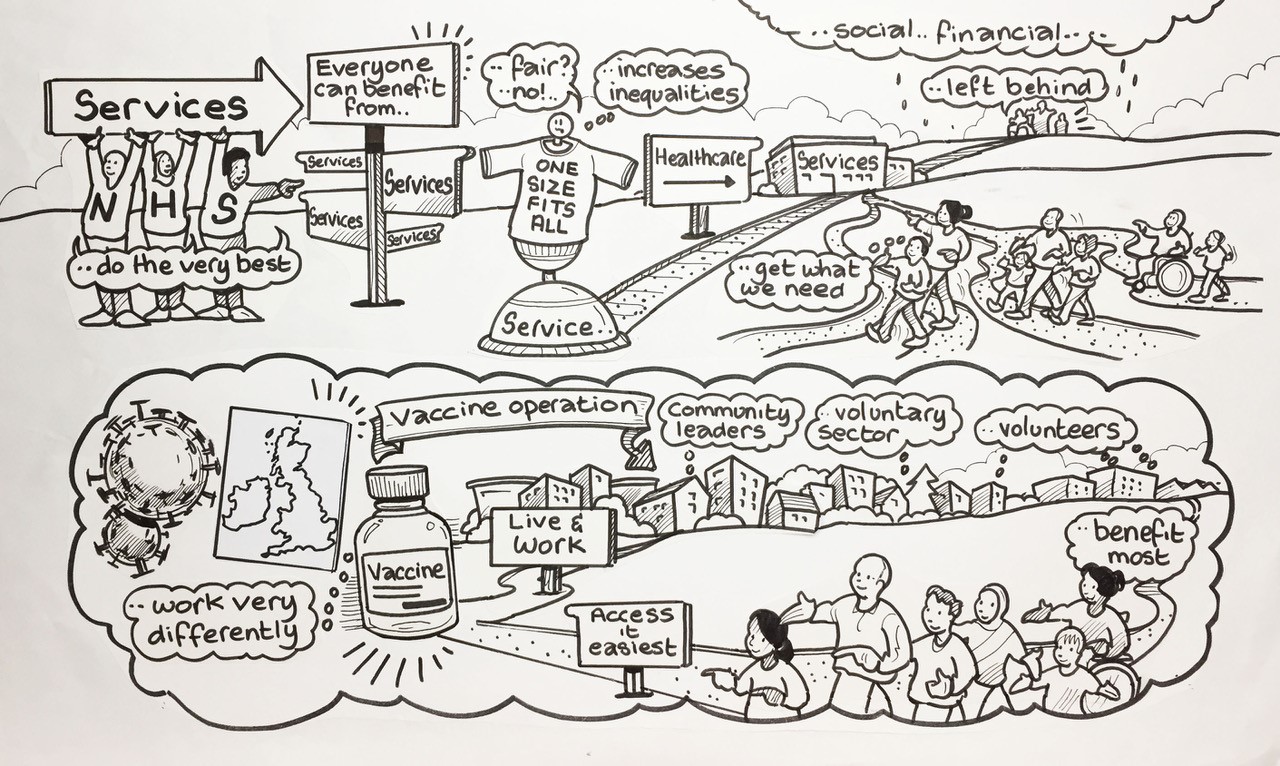 ..social.. financial....
Services
Everyone
can benefit
from..
..fair?
no!..
..increases
inequalities
..left behind
Services
Services
Services
Services
ONE
SIZE
FITS
ALL
Healthcare
Services
N H S
..do the very best
..get what
we need
Service
Vaccine operation
community
leaders
..voluntary
sector
..volunteers
Live &
Work
..benefit
most
Vaccine
..work very
differently
Access
it
easiest